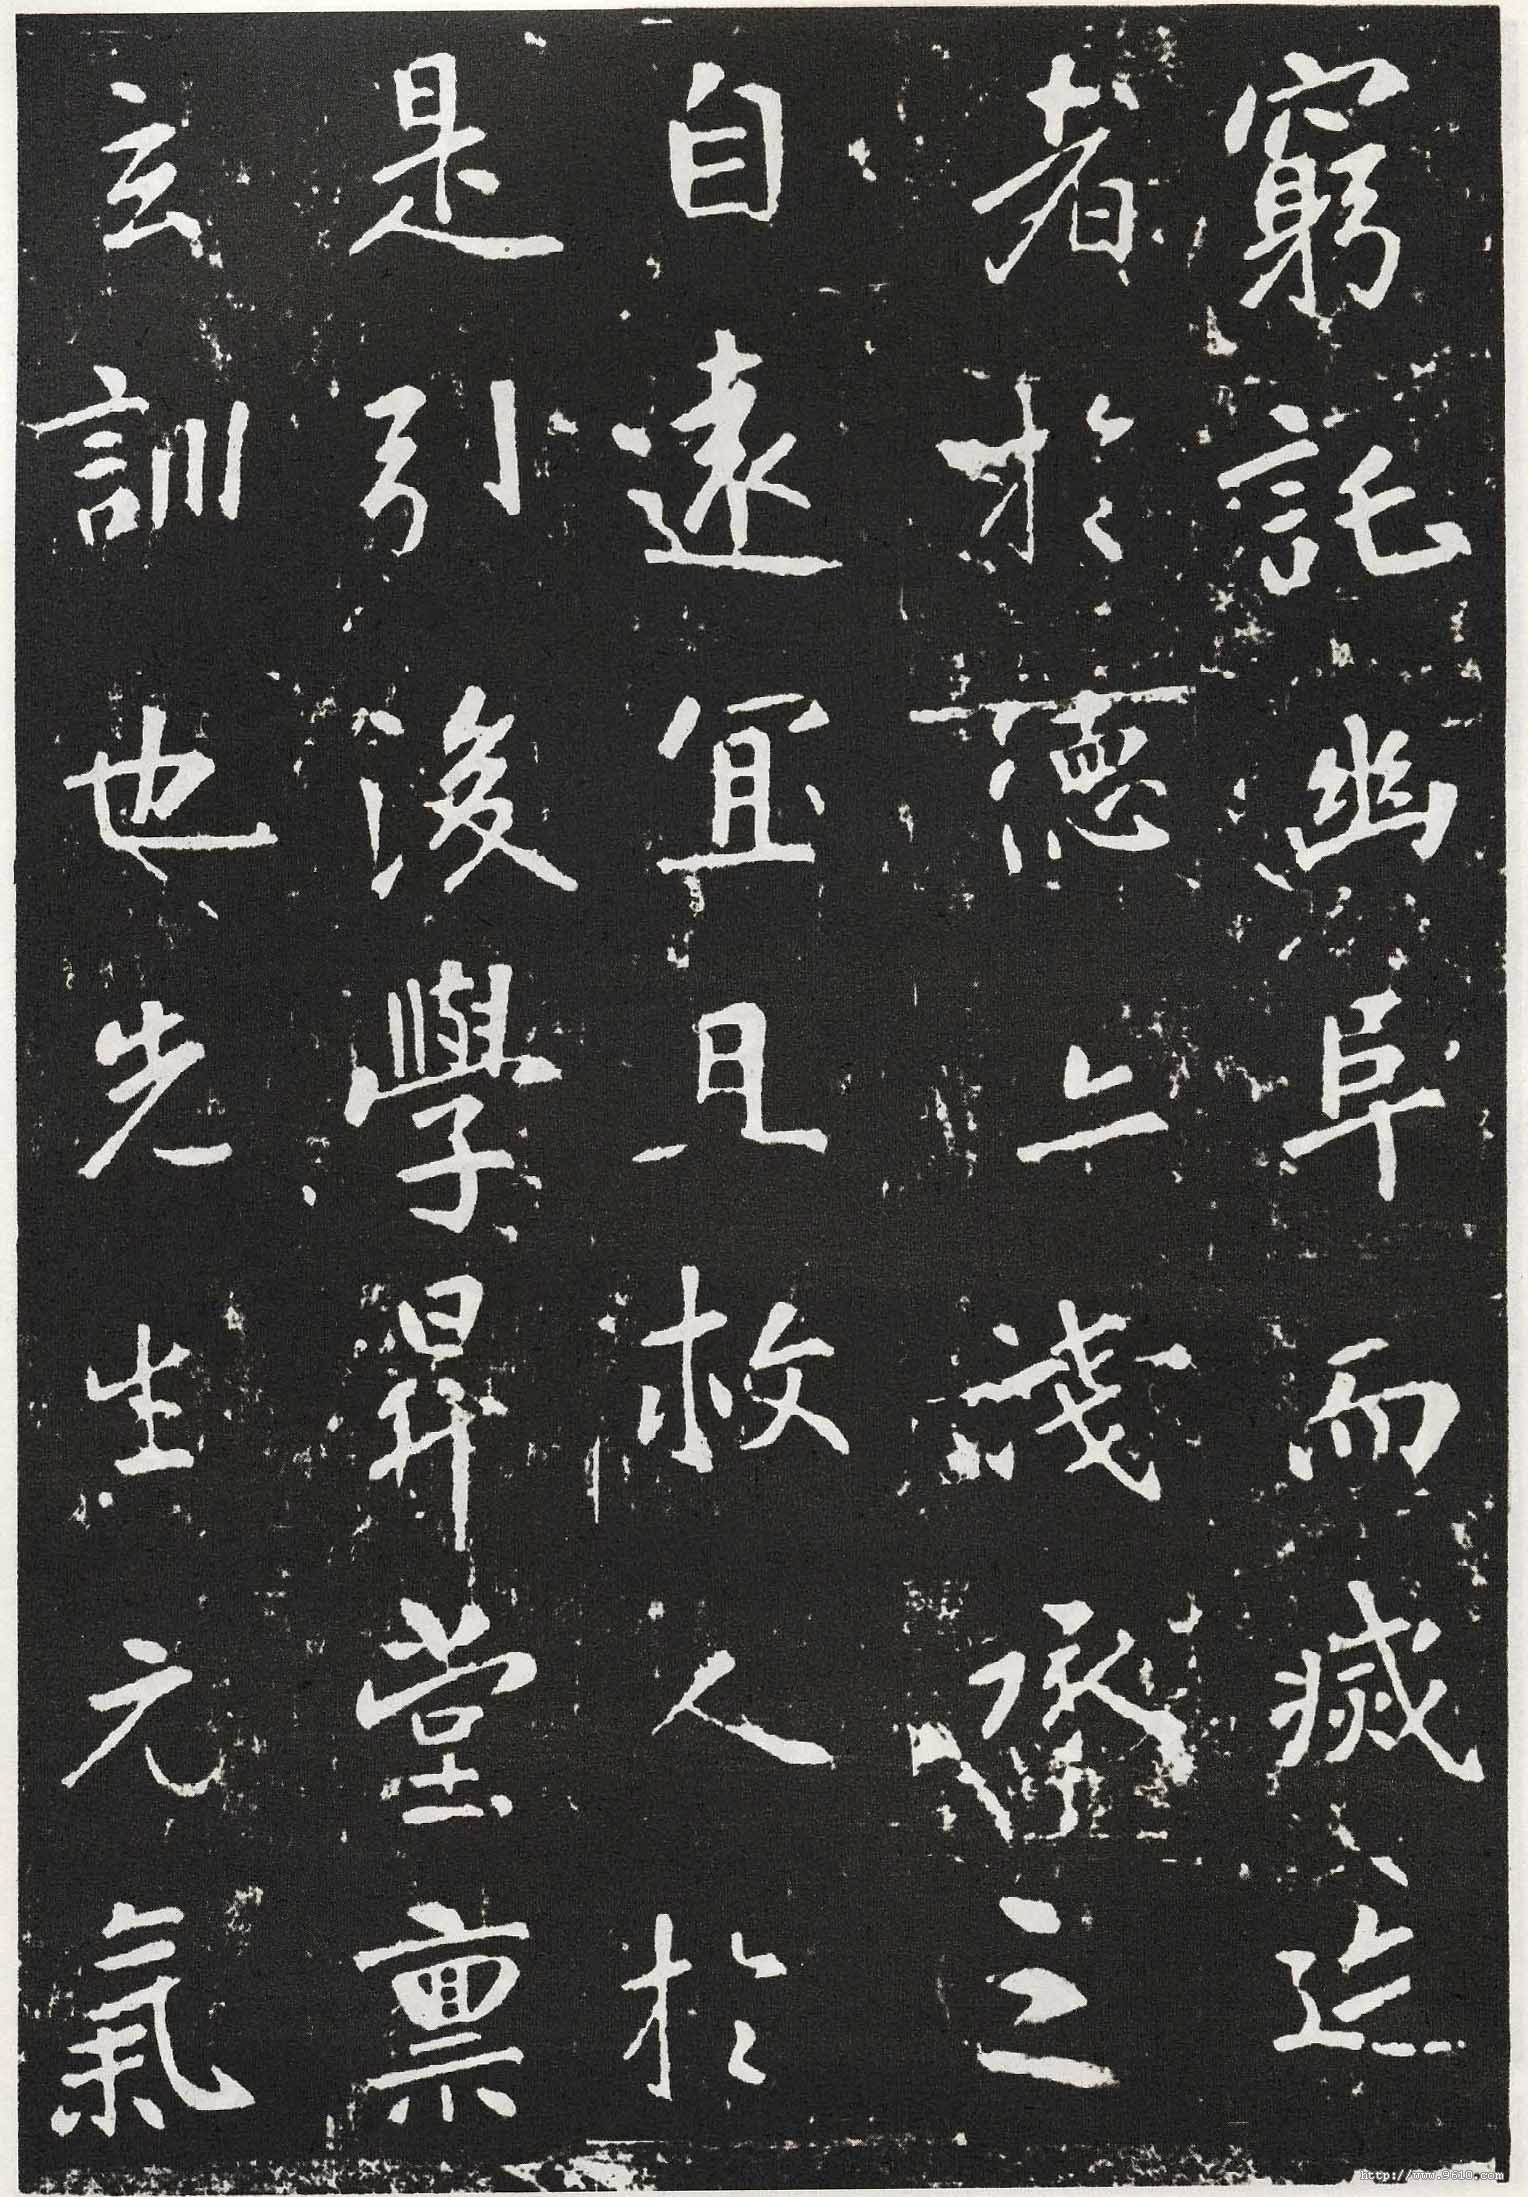 窮託幽阜而滅迹
者於德上淺承之
自遠宜且救人於
是引後學昇堂稟
玄訓也先生元氣
http://www.9610.com